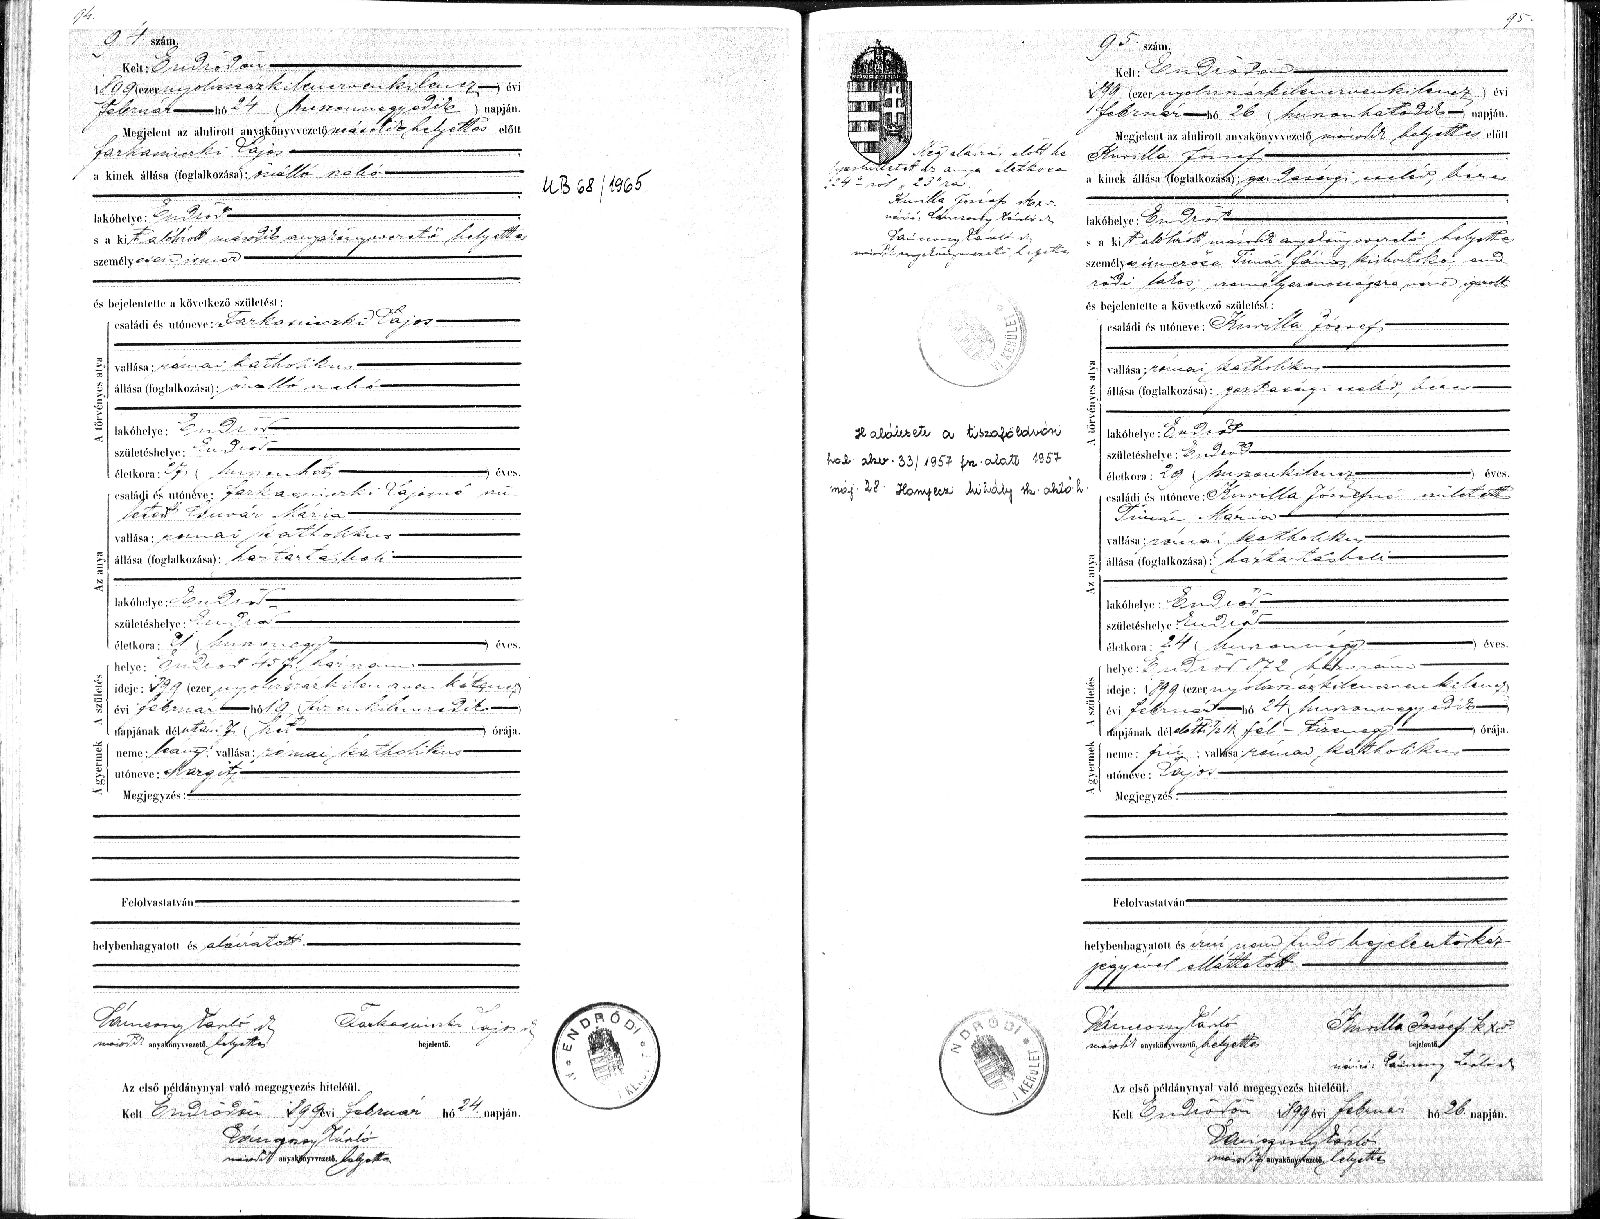 94.
94 szám.
Kelt: Endrődön
1899 (ezer nyolczszázkilenczvenkilencz) évi
február hó 24 (huszonnegyedik) napján.
Megjelent az alulirott anyakönyvvezető második helyettes előtt
Farkasinszki Lajos
a kinek állása (foglalkozása): önálló szabó
lakóhelye: Endrőd
s a kit alólirott második anyakönyvvezető helyettes
személyesen ismer
és bejelentette a következő születést:
A törvényes atya
családi és utóneve: Farkasinszki Lajos
vallása: római katholikus
állása (foglalkozása): önálló szabó
lakóhelye: Endrőd
születéshelye: Endrőd
életkora: 27 (huszonhét) éves.
Az anya
családi és utóneve: Farkasinszki Lajosné szü-
letett Timár Mária
vallása: római katholikus
állása (foglalkozása): háztartásbeli
lakóhelye: Endrőd
születéshelye: Endrőd
életkora: 21 (huszonegy) éves.
A születés
helye: Endrőd 457 házszám
ideje: 1899 (ezer nyolczszázkilenczvenkilencz)
évi február hó 19 (tizenkilenczedik)
napjának délutáni 7 (hét) órája.
A gyermek
neme: leány; vallása: római katholikus
utóneve: Margit
Megjegyzés:
Felolvastatván
helybenhagyatott és aláiratott.
második anyakönyvvezető helyettes
Farkasinszki Lajos
bejelentő.
Az első példánynyal való megegyezés hiteléül.
Kelt Endrődön 1899 évi február hó 24 napján.
második anyakönyvvezető helyettes
UB 68/1965
ENDRŐDI
95.
Még aláirás előtt ki-
az anya életkora
"24"-ről "23"ra.
Kurilla József kezev.
második anyakönyvvezető helyettes
KERÜLET
Halálesete a tiszaföldvári
hal. akv. 33/1957 fsz. alatt 1957
máj. 28. Hanyecz Mihály sk. aktóh.
NDRŐDI
I KERÜLET
95 szám.
Kelt: Endrődön
1899 (ezer nyolczszázkilenczvenkilencz) évi
február hó 26 (huszonhatodik) napján.
Megjelent az alulirott anyakönyvvezető második helyettes előtt
Kurilla József
a kinek állása (foglalkozása): gazdasági cseléd, béres
lakóhelye: Endrőd
s a kit alólirott második anyakönyvvezető helyettes
személyes ismerőse Timár János, kisbirtokos end-
rődi lakos, személyazonosságára nézve igazolt
és bejelentette a következő születést:
A törvényes atya
családi és utóneve: Kurilla József
vallása: római katholikus
állása (foglalkozása): gazdasági cseléd, béres
lakóhelye: Endrőd
születéshelye: Endrőd
életkora: 29 (huszonkilencz) éves.
Az anya
családi és utóneve: Kurilla Józsefné született
Timár Mária
vallása: római katholikus
állása (foglalkozása): háztartásbeli
lakóhelye: Endrőd
születéshelye: Endrőd
életkora: 24 (huszonnégy) éves.
A születés
helye: Endrőd 872 házszám
ideje: 1899 (ezer nyolczszázkilenczvenkilencz)
évi február hó 24 (huszonnegyedik)
napjának délelőtti ½11 (fél-tizenegy) órája.
A gyermek
neme: fiú; vallása: római katholikus
utóneve: Lajos
Megjegyzés:
Felolvastatván
helybenhagyatott és irni nem tudó bejelentő kéz-
jegyével elláttatott
második anyakönyvvezető helyettes
Kurilla József kxv
bejelentő.
Az első példánynyal való megegyezés hiteléül.
Kelt Endrődön 1899 évi február hó 26 napján.
második anyakönyvvezető helyettes